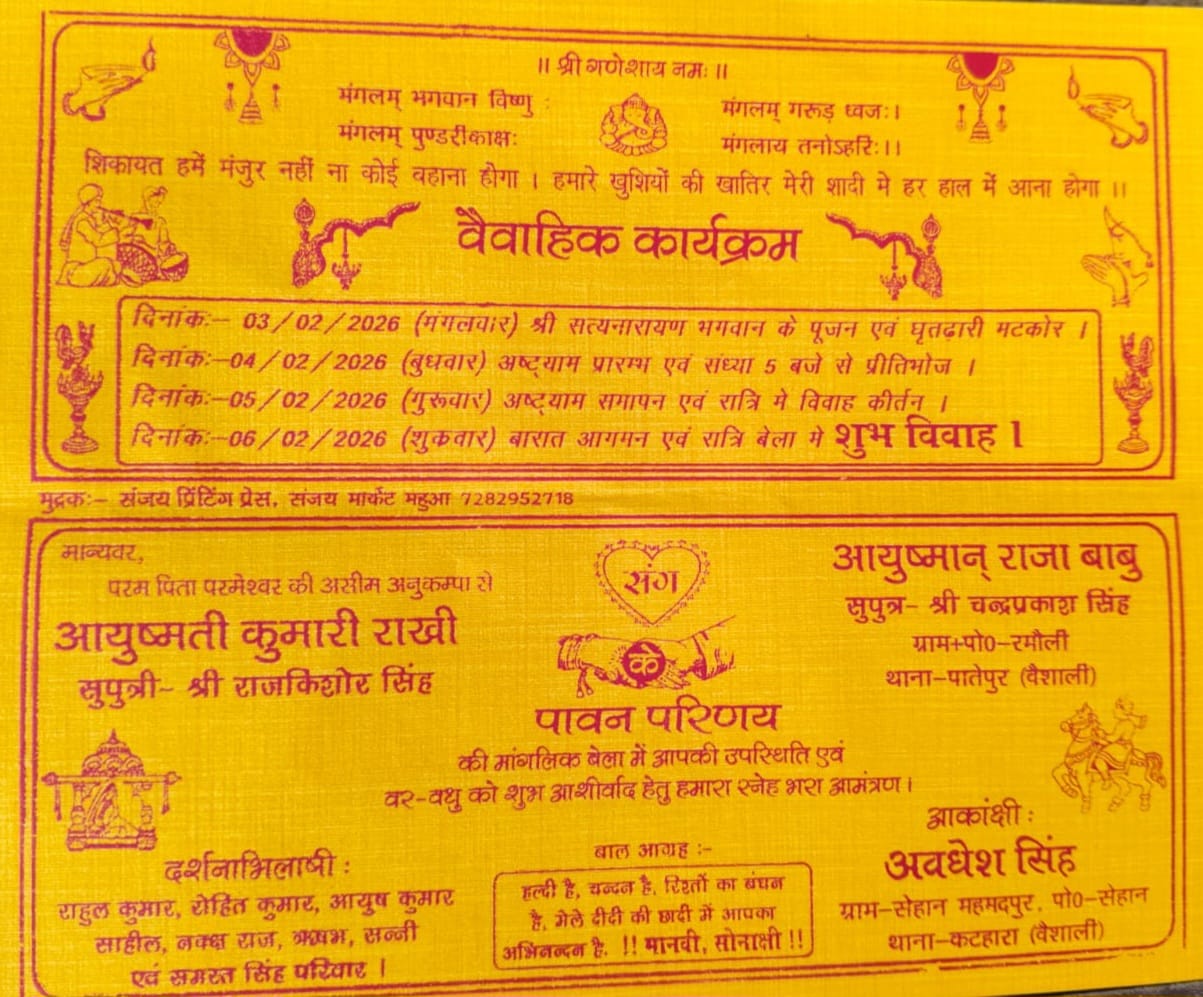 ॥ श्री गणेशाय नमः ॥
मंगलम् भगवान विष्णु :
मंगलम् पुण्डरीकाक्षः
मंगलम् गरूड़ ध्वजः।
मंगलाय तनोऽहरिः।।
शिकायत हमें मंजुर नहीं ना कोई बहाना होगा । हमारे खुशियों की खातिर मेरी शादी मे हर हाल में आना होगा ।।
वैवाहिक कार्यक्रम
दिनांकः- 03/02/2026 (मंगलवार) श्री सत्यनारायण भगवान के पूजन एवं घृतढ़ारी मटकोर ।
दिनांकः-04/02/2026 (बुधवार) अष्ट्याम प्रारम्भ एवं संध्या 5 बजे से प्रीतिभोज ।
दिनांकः-05/02/2026 (गुरूवार) अष्ट्याम समापन एवं रात्रि मे विवाह कीर्तन ।
दिनांकः-06/02/2026 (शुकवार) बारात आगमन एवं रात्रि बेला मे शुभ विवाह ।
मुद्रकः- संजय प्रिंटिंग प्रेस, संजय मार्केट महुआ 7282952718
मान्यवर,
परम पिता परमेश्वर की असीम अनुकम्पा से
आयुष्मती कुमारी राखी
सुपुत्री- श्री राजकिशोर सिंह
संग
के
आयुष्मान् राजा बाबु
सुपुत्र- श्री चन्द्रप्रकाश सिंह
ग्राम+पो0-रमौली
थाना-पातेपुर (वैशाली)
पावन परिणय
की मांगलिक बेला में आपकी उपस्थिति एवं
वर-वधु को शुभ आशीर्वाद हेतु हमारा स्नेह भरा आमंत्रण।
दर्शनाभिलाषी :
राहुल कुमार, रोहित कुमार, आयुष कुमार
साहील, नक्ष राज, ऋषभ, सन्नी
एवं समस्त सिंह परिवार ।
बाल आग्रह :-
हल्दी है, चन्दन है, रिश्तों का बंधन
है, मेले दीदी की छादी में आपका
अभिनन्दन है. !! मानवी, सोनाक्षी !!
आकांक्षी :
अवधेश सिंह
ग्राम-सेहान महमदपुर, पो0-सेहान
थाना-कटहारा (वैशाली)